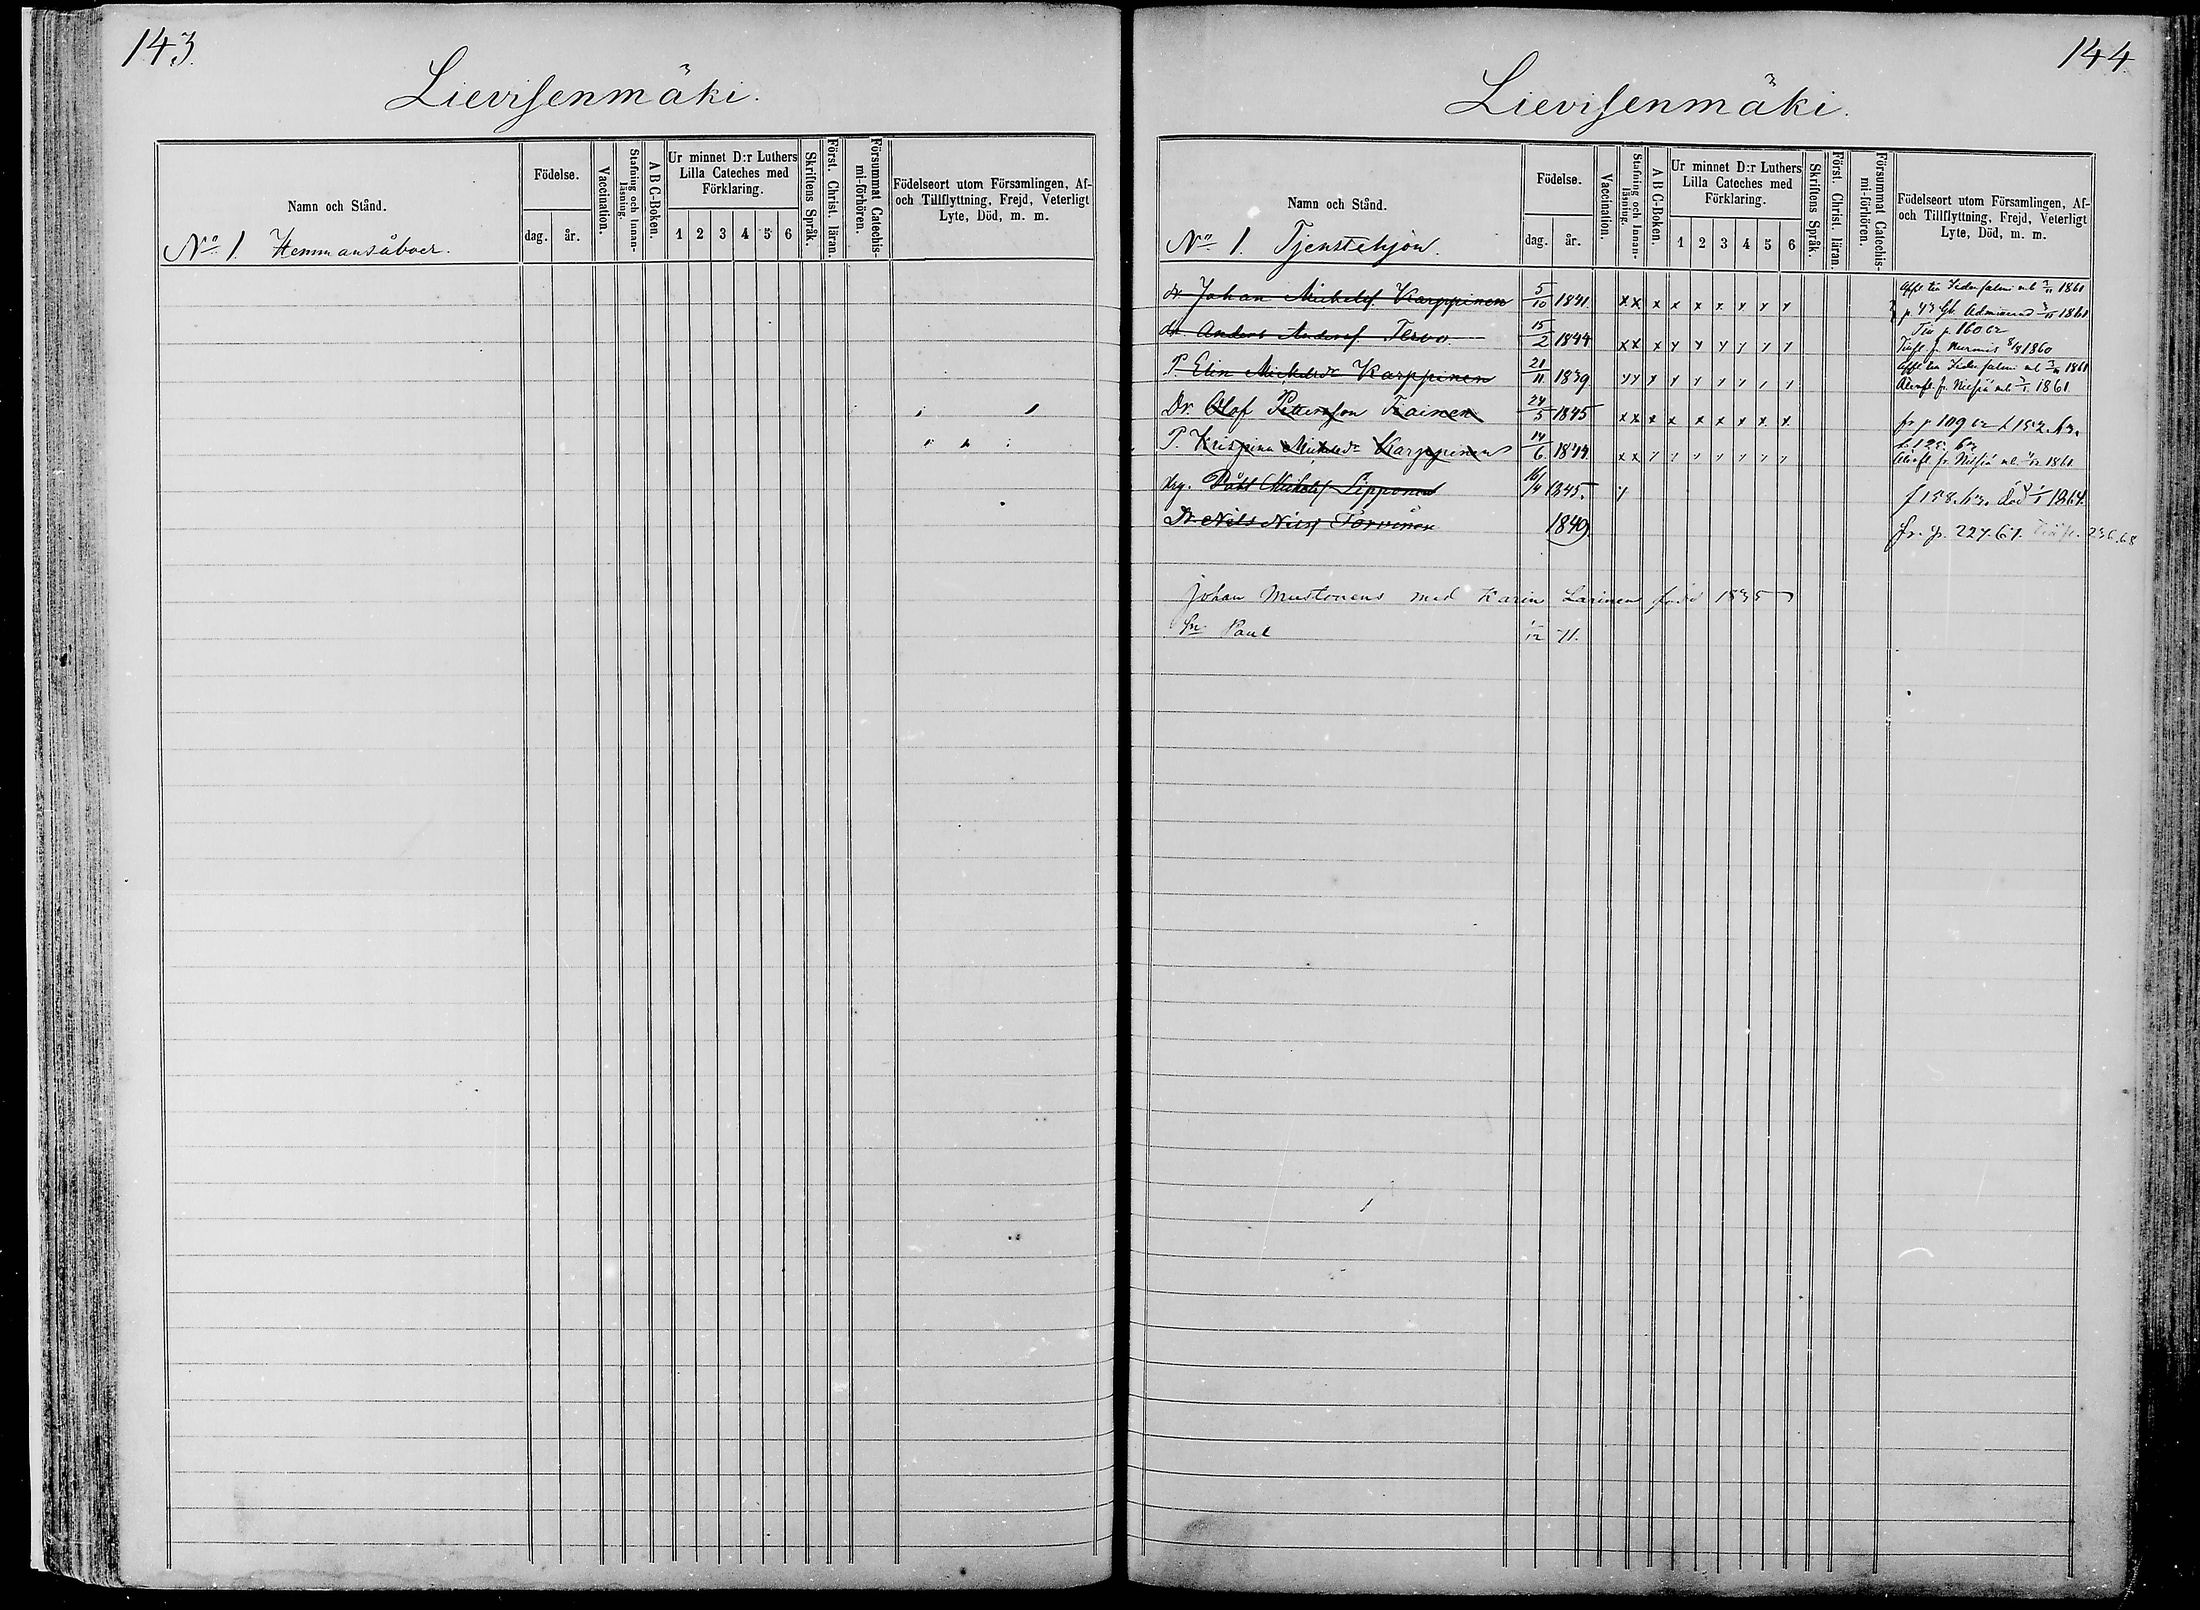 143
Lievisenmäki.
Namn och Stånd.
Födelse.
dag. år.
Vaccination.
Stafning och Innan-läsning.
A B C-Boken.
Ur minnet D:r Luthers Lilla Cateches med Förklaring.
1 2 3 4 5 6
Skriftens Språk.
Först. Christ. läran.
Försummat Catechis-mi-förhören.
Födelseort utom Församlingen, Af-
och Tillflyttning, Frejd, Veterligt
Lyte, Död, m. m.
No 1. Hemmansåboer.
144
Lievisenmäki.
Namn och Stånd.
Födelse.
dag. år.
Vaccination.
Stafning och Innan-läsning.
A B C-Boken.
Ur minnet D:r Luthers Lilla Cateches med Förklaring.
1 2 3 4 5 6
Skriftens Språk.
Först. Christ. läran.
Försummat Catechis-mi-förhören.
Födelseort utom Församlingen, Af-
och Tillflyttning, Frejd, Veterligt
Lyte, Död, m. m.
No 1. Tjenstehjon.
dr Johan Michelsf Karppinen 5/10 1841 x x x x x x x x x 1861
p. 43 1861
dr Anders Andersf Tervo 15/2 1844 x x x x x x x x x
fr. Nurmis 8/8 1860
P Elin Michelsdr Karppinen 21/11 1839 x x x x x x x x x 1861
fr. Nilsiä 1861
Dr. Olof Pettersson Tiainen 24/5 1845 x x x x x x x x x fr p 109
P. Krispina Michelsdr Karppinen 14/6 1844 x x x x x x x x x
fr. Nilsiä 1861
Påhl Michelsf Sipponen 16/4 1845. x f 158. död 1864.
Dr Nils Nilsf Torvinen 1849 fr. p. 227.67.
Johan Mustonens med Karin Larinen född 1835
Paul 1/12 71.